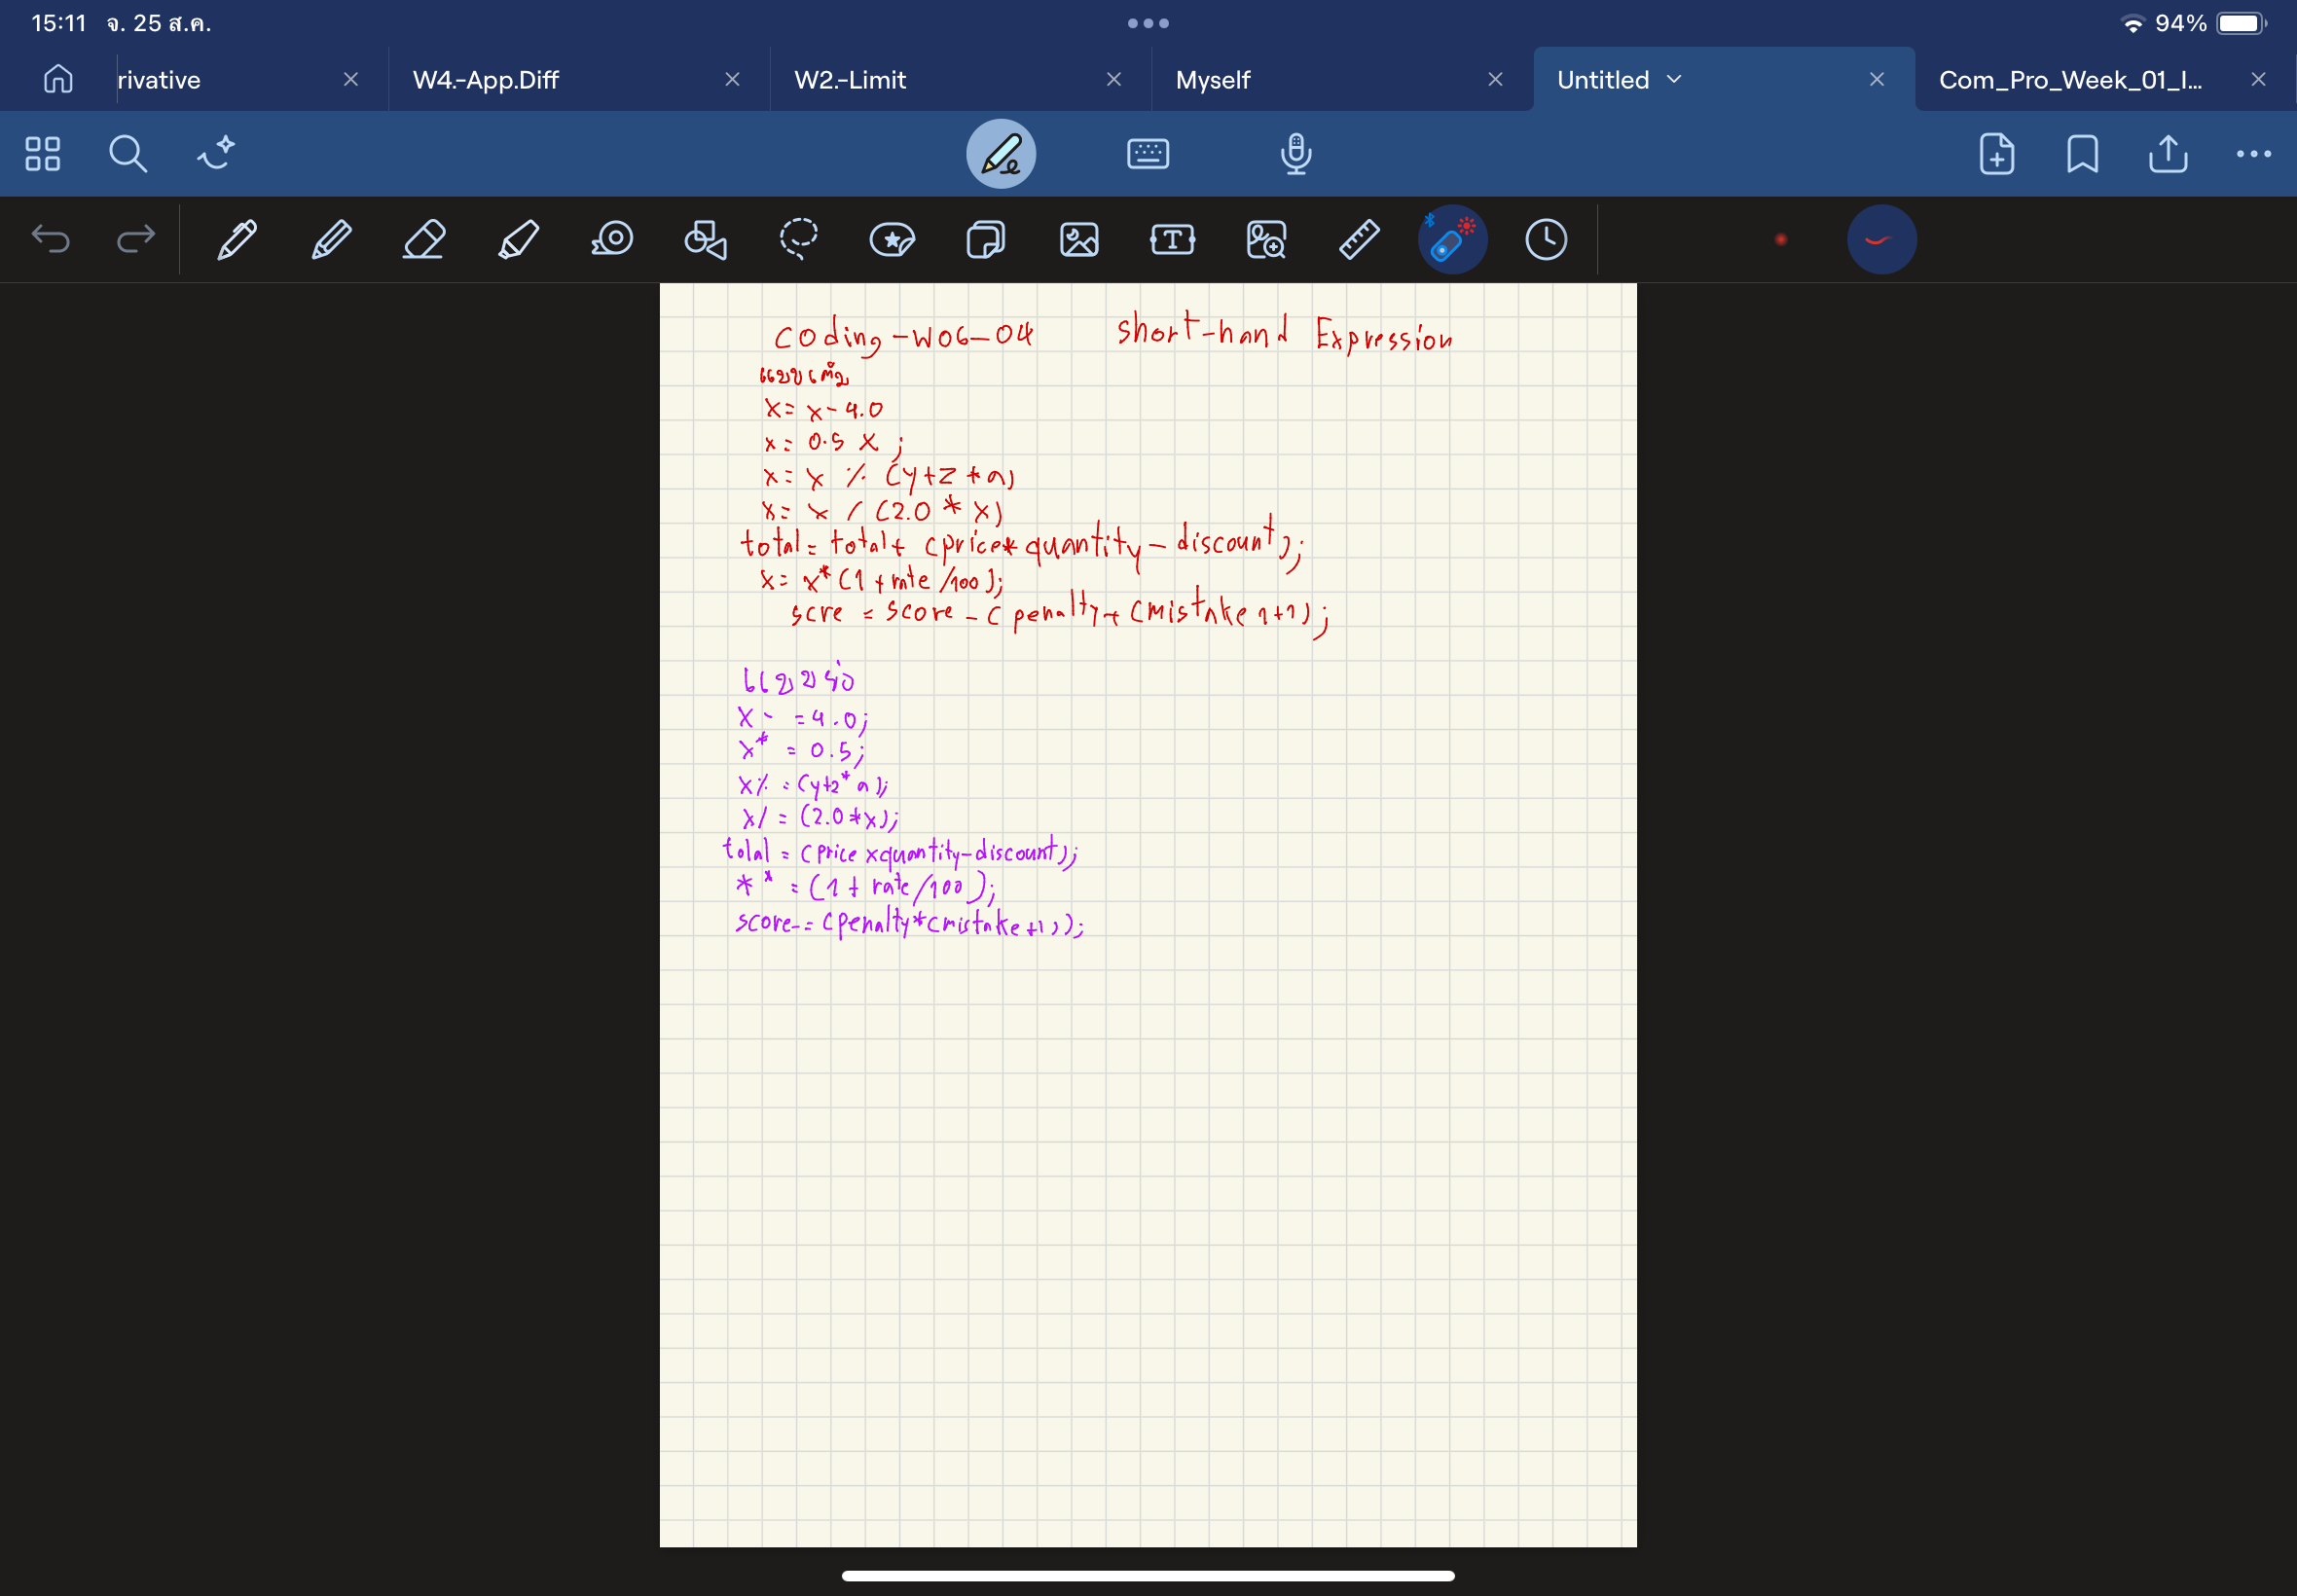 15:11 จ. 25 ส.ค. 94%
rivative W4.-App.Diff W2.-Limit Myself Untitled Com_Pro_Week_01_I...
Coding-W06-04 Short-hand Expression
แบบเต็ม
x= x- 4.0
x= 0.5 x ;
x= x % (y+z *a)
x= x / (2.0 * x)
total= total+ (price*quantity-discount);
x= x*(1+rate/100);
scre = score - ( penalty+ (mistake 1+1) ;
แบบย่อ
x- =4.0;
x* = 0.5;
x% =(y+z*a);
x/ = (2.0*x);
total = (price xquantity-discount);
* * =(1+ rate/100 );
score-= (penalty*(mistake+1));